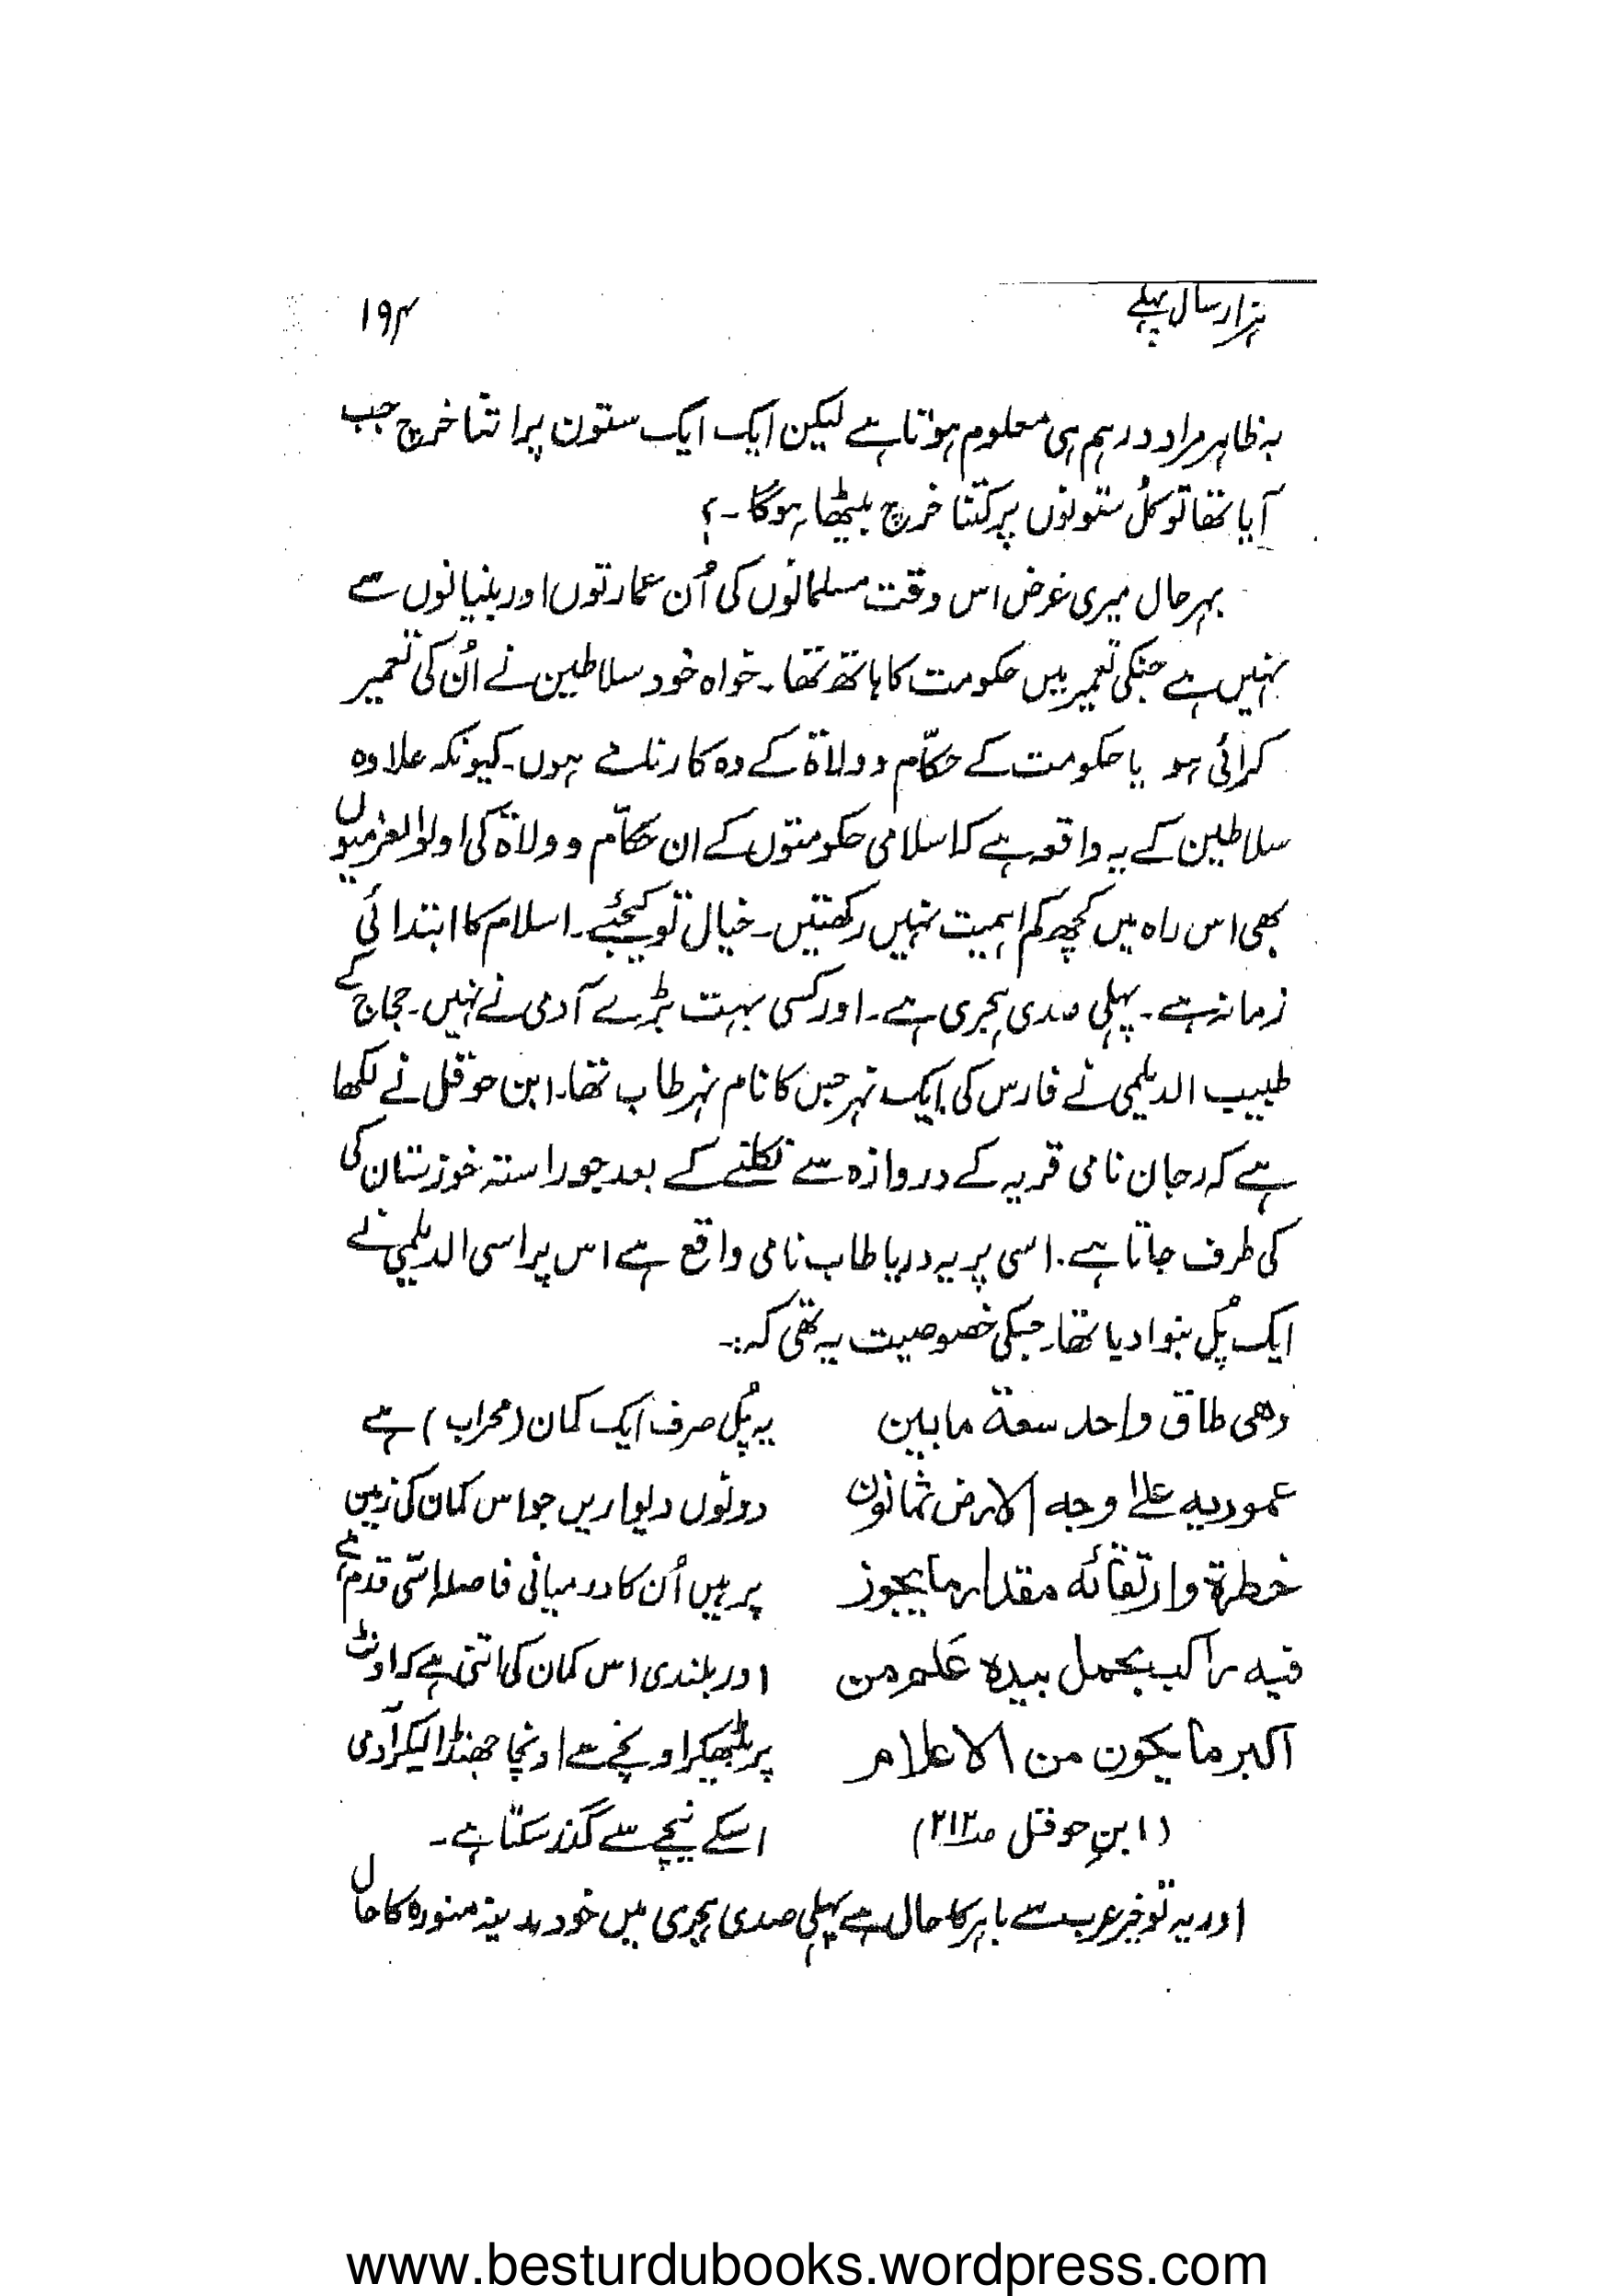 ہزار سال پہلے
۱۹۴
بہ ظاہر مراد درہم ہی معلوم ہوتا ہے لیکن ایک ایک ستون پر اتنا خرچ جب
آیا تھا تو کُل ستونوں پر کتنا خرچ بیٹھا ہوگا ۔؟
بہر حال میری غرض اس وقت مسلمانوں کی اُن عمارتوں اور بنیانوں سے
نہیں ہے جنکی تعمیر میں حکومت کا ہاتھ تھا ۔ خواہ خود سلاطین نے اُن کی تعمیر
کرائی ہو یا حکومت کے حکّام و ولاۃ کے وہ کارنامے ہوں ۔ کیونکہ علاوہ
سلاطین کے یہ واقعہ ہے کہ اسلامی حکومتوں کے ان حکّام و ولاۃ کی اولوالعزمیوں
بھی اس راہ میں کچھ کم اہمیت نہیں رکھتیں ۔ خیال تو کیجئے ۔ اسلام کا ابتدائی
زمانہ ہے ۔ پہلی صدی ہجری ہے ۔ اور کسی بہت بڑے آدمی نے نہیں ۔ حجاج کے
طبیب الدیلمی نے فارس کی ایک نہر جس کا نام نہر طاب تھا ۔ ابن حوقل نے لکھا
ہے کہ رجان نامی قریہ کے دروازہ سے نکلنے کے بعد جو راستہ خوزستان کی
کی طرف جاتا ہے ۔ اسی پر یہ دریا طاب نامی واقع ہے اس پر اسی الدیلمی نے
ایک پُل بنوا دیا تھا ۔ جسکی خصوصیت یہ تھی کہ :۔
وهی طاق واحد سعة مابین
عمودیه علی وجه الارض ثمانون
خطوة وارتفائه مقدار مایجوز
فیه راکب بحمل بیده عَلم من
اکبر ما یکون من الاعلام
(ابنِ حوقل صـ۲۱۲)
یہ پُل صرف ایک کمان (محراب) ہے
دونوں دیواریں جو اس کمان کی زمین
پر ہیں اُن کا درمیانی فاصلہ اسّی قدم ہے
اور بلندی اس کمان کی اتنی ہے کہ اونٹ
پر بیٹھکر اونچے سے اونچا جھنڈا لیکر آدمی
اسکے نیچے سے گذر سکتا ہے ۔
اور یہ تو خیر عرب سے باہر کا حال ہے پہلی صدی ہجری میں خود مدینہ منورہ کا حال
www.besturdubooks.wordpress.com